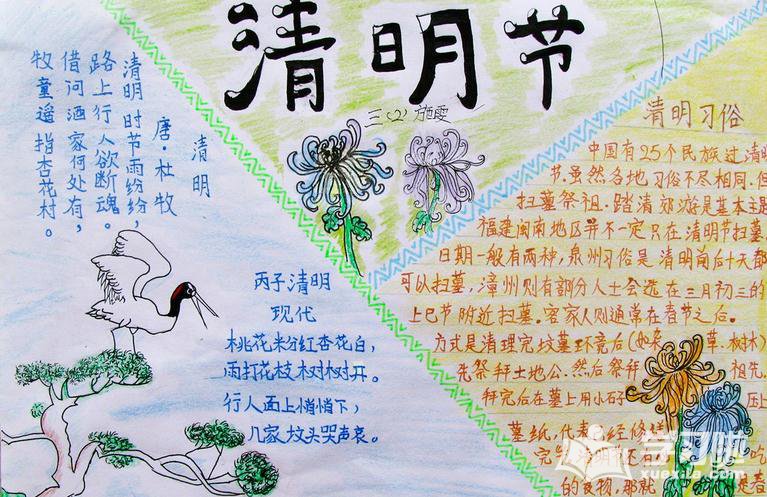 清明节
三(2) 施雯
清明
唐·杜牧
清明时节雨纷纷，
路上行人欲断魂。
借问酒家何处有，
牧童遥指杏花村。
丙子清明
现代
桃花粉红杏花白，
雨打花枝树树开。
行人面上悄悄下，
几家坟头哭声哀。
清明习俗
中国有25个民族过清明
节。虽然各地习俗不尽相同，但
扫墓祭祖、踏清郊游是基本主题
福建闽南地区并不一定只在清明节扫墓，
日期一般有两种，泉州习俗是清明前后十天都
可以扫墓，漳州则有部分人士会选在三月初三的
上巳节附近扫墓。客家人则通常在春节之后。
方式是清理完坟墓环境后（如杂 草、树木）
先祭拜土地公，然后祭拜 祖先
拜完后在墓上用小石子 压上
墓纸，代表 经修
完 吃
的食物，那就 是春
学习啦
xuexila.com